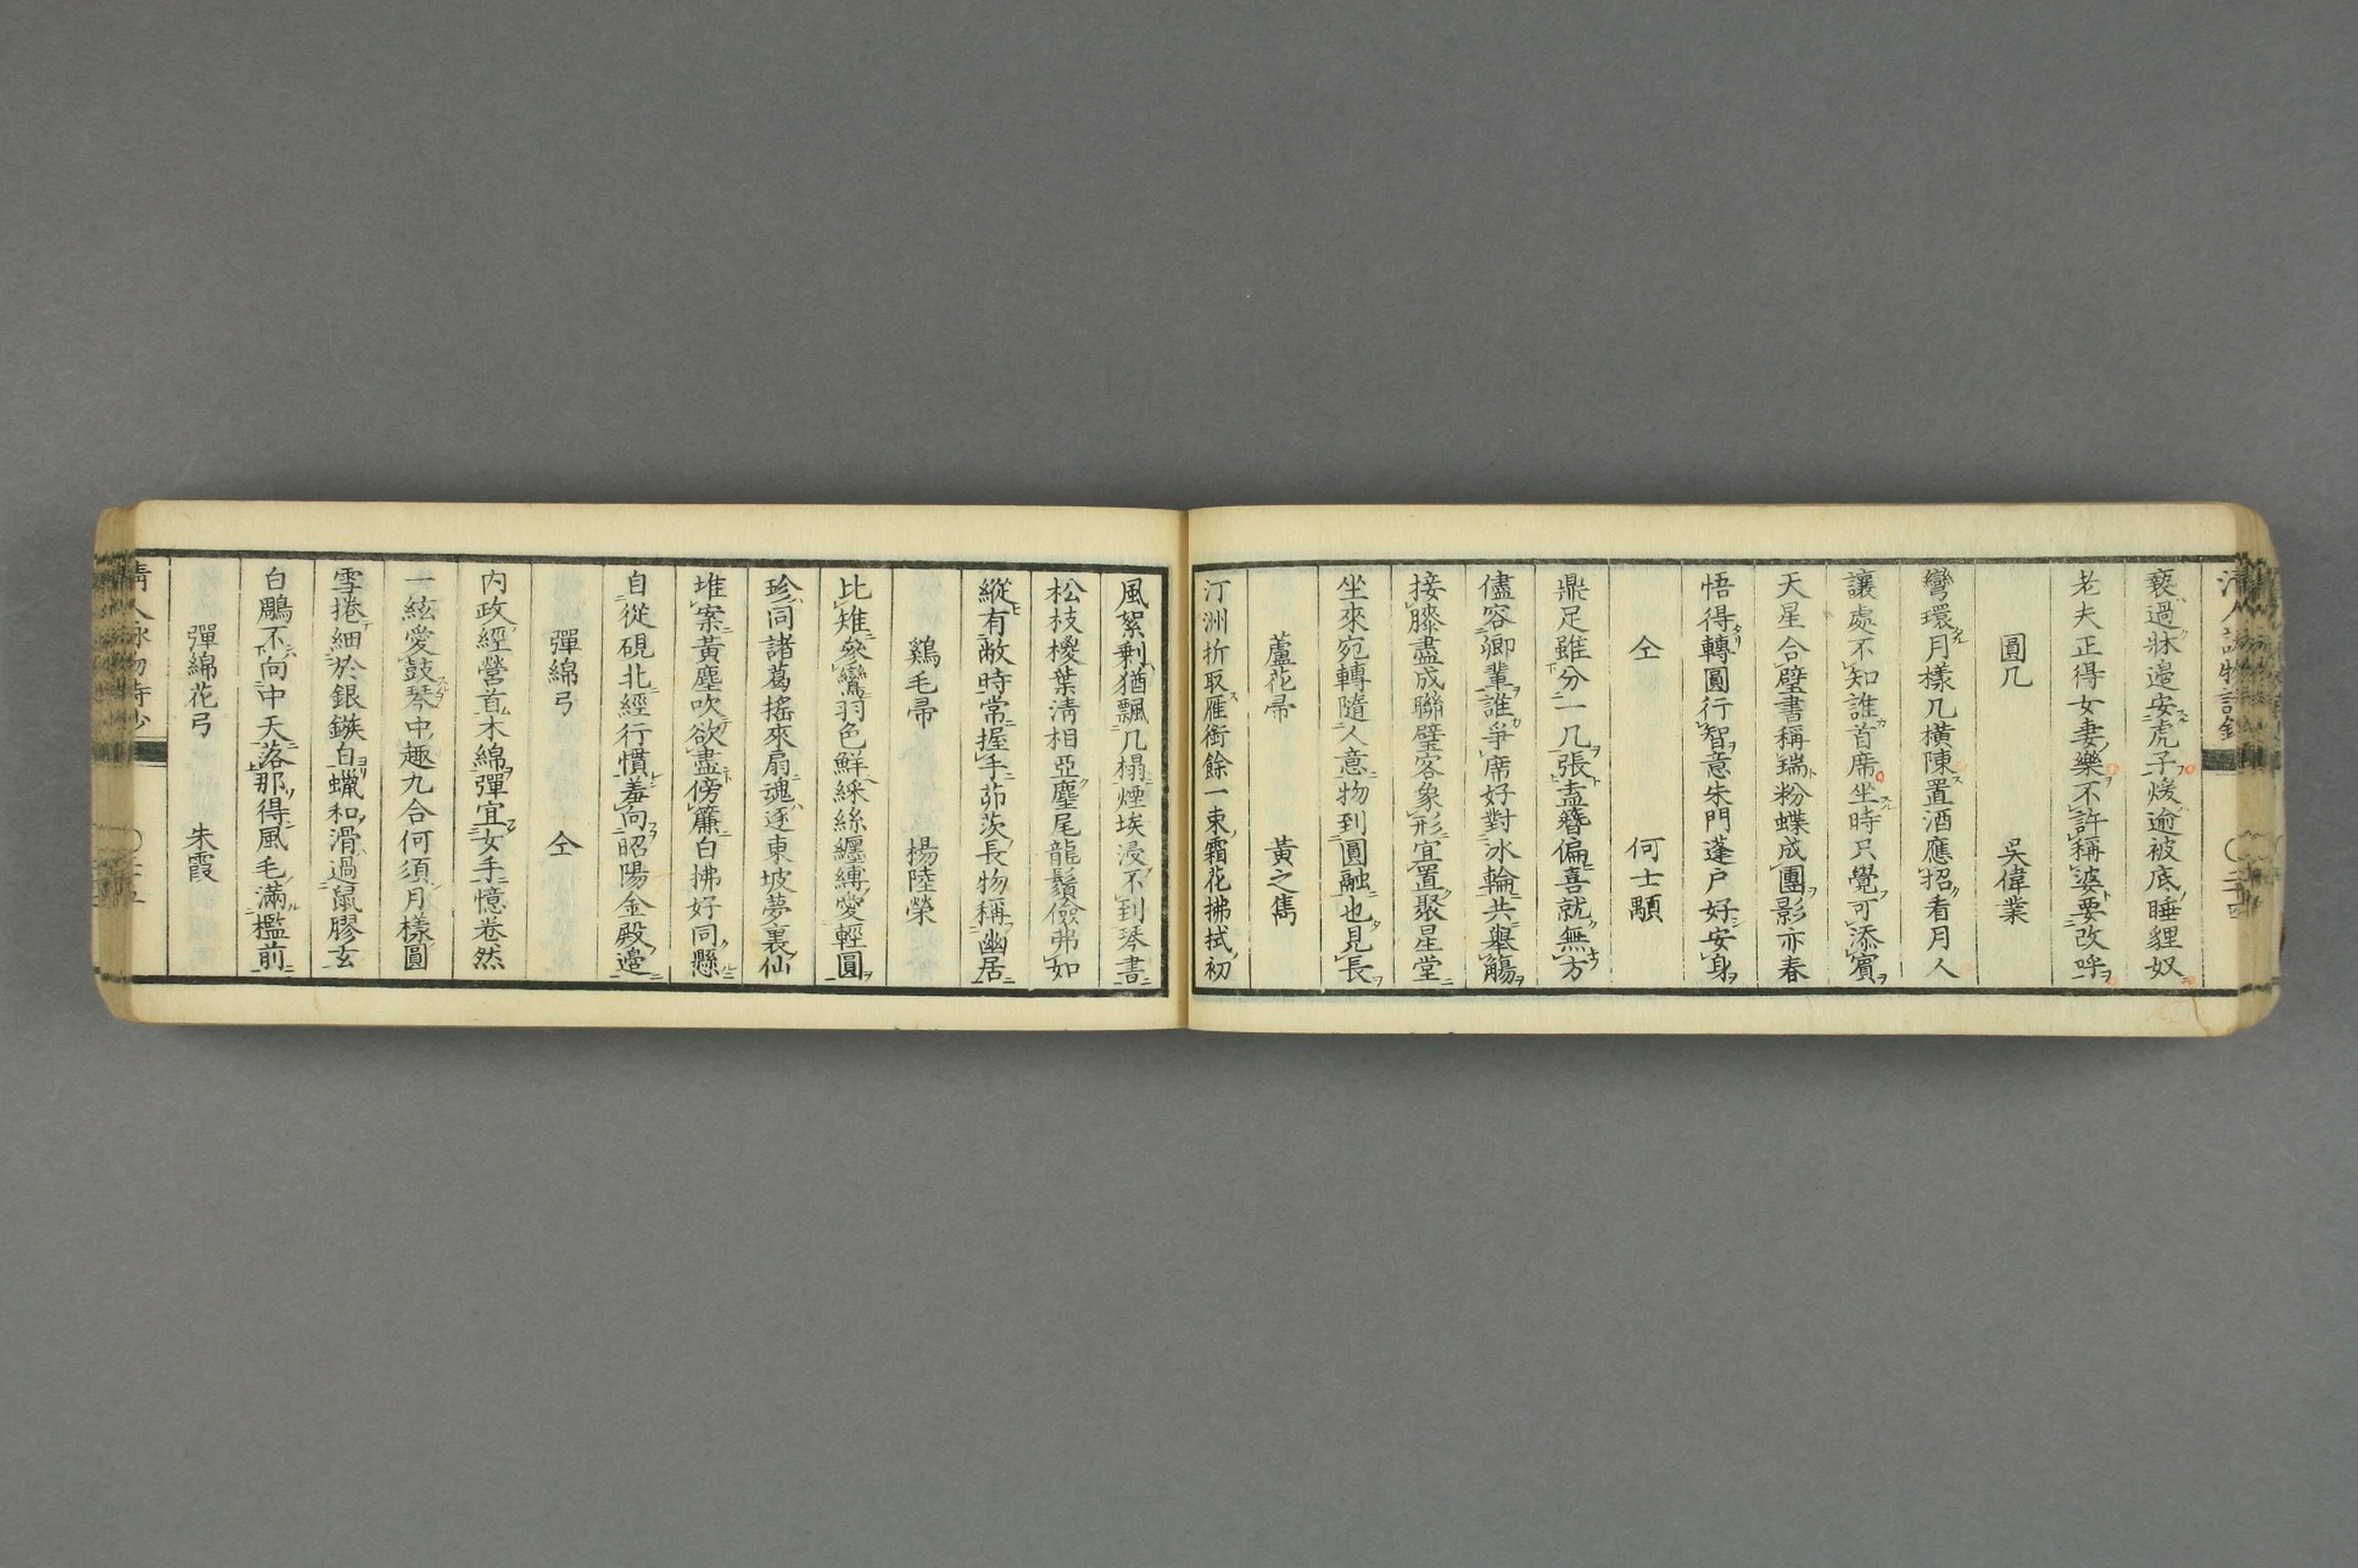 褻過牀邊安虎子煖逾被底睡貍奴
老夫正得女妻樂不許稱婆要改呼
圓几 吳偉業
彎環月樣几橫陳置酒應招看月人
讓處不知誰首席坐時只覺可添賓
天星合璧書稱瑞粉蝶成團影亦春
悟得轉圓行智意朱門蓬戸好安身
仝 何士顒
鼎足雖分一几張盍簪偏喜就無方
儘容卿輩誰爭席好對冰輪共舉觴
接膝盡成聯璧客象形宜置聚星堂
坐來宛轉隨人意物到圓融也見長
蘆花帚 黃之雋
汀洲折取雁銜餘一束霜花拂拭初
風絮剩猶飄几榻煙埃浸不到琴書
松枝椶葉淸相亞麈尾龍鬚儉弗如
縱有敝時常握手茆茨長物稱幽居
鷄毛帚 楊陸榮
比雉叅鸞羽色鮮綵絲纏縳愛輕圓
珍同諸葛搖來扇魂逐東坡夢裏仙
堆案黃塵吹欲盡傍簾白拂好同懸
自從硯北經行慣羞向昭陽金殿邊
彈綿弓 仝
内政經營首木綿彈宜女手憶卷然
一絃愛鼓琴中趣九合何須月樣圓
雪捲細於銀鏃白蠟和滑過鼠膠玄
白鵰不向中天落那得風毛滿檻前
彈綿花弓 朱霞